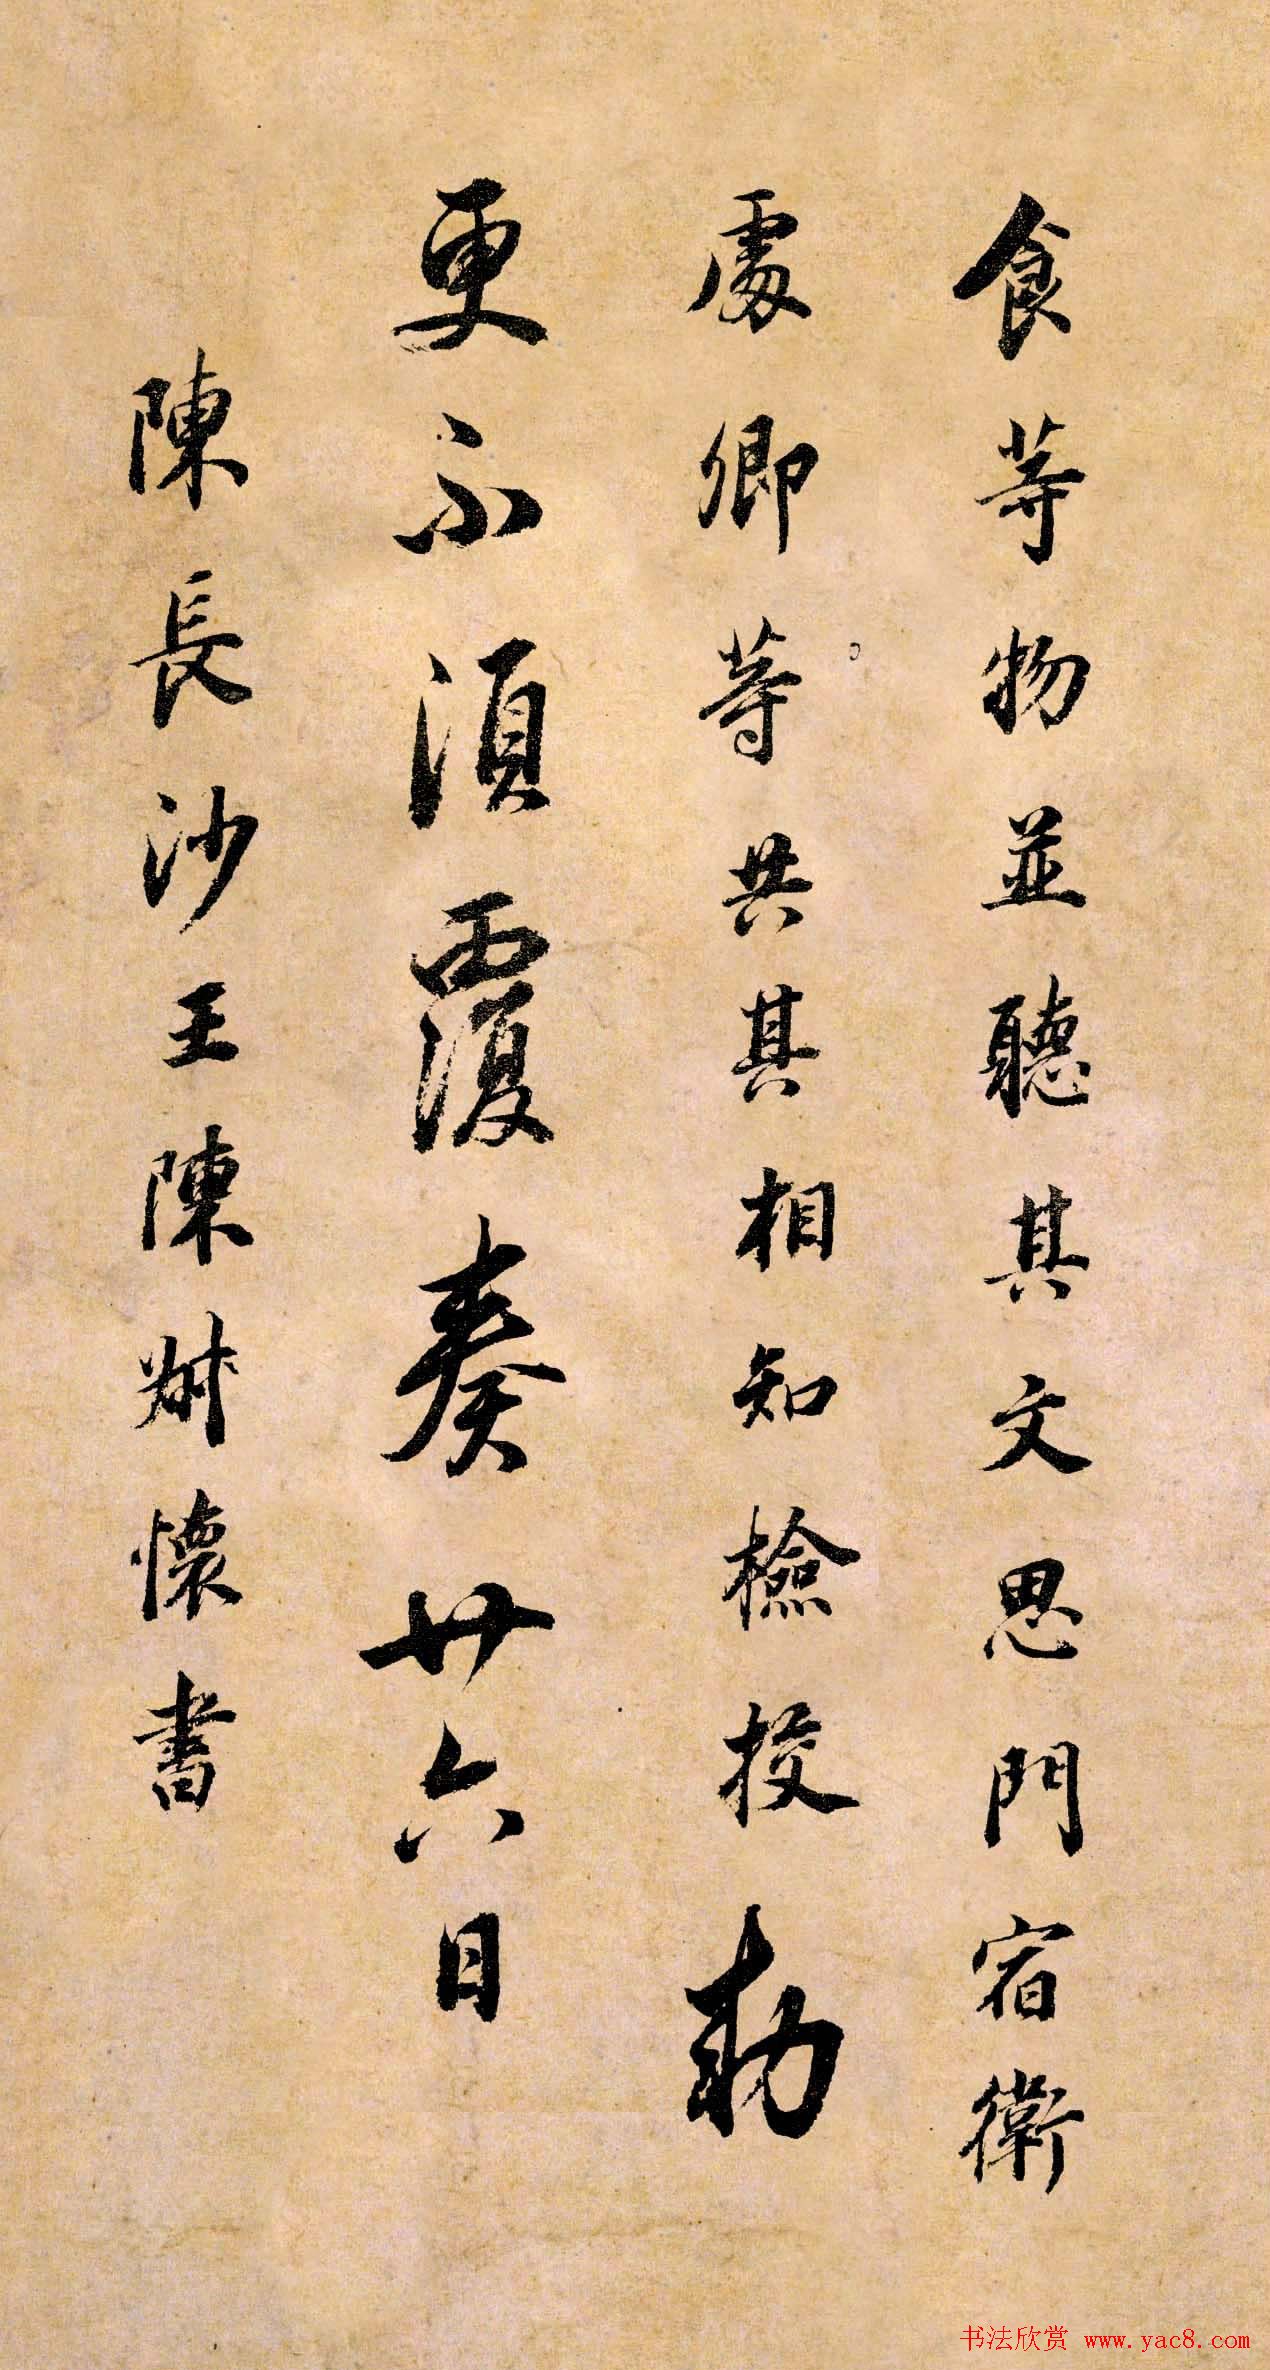 食等物並聽其文思門宿衛
處卿等共其相知檢校勅
更不須覆奏廿六日
陳長沙王陳叔懷書
书法欣赏 www.yac8.com